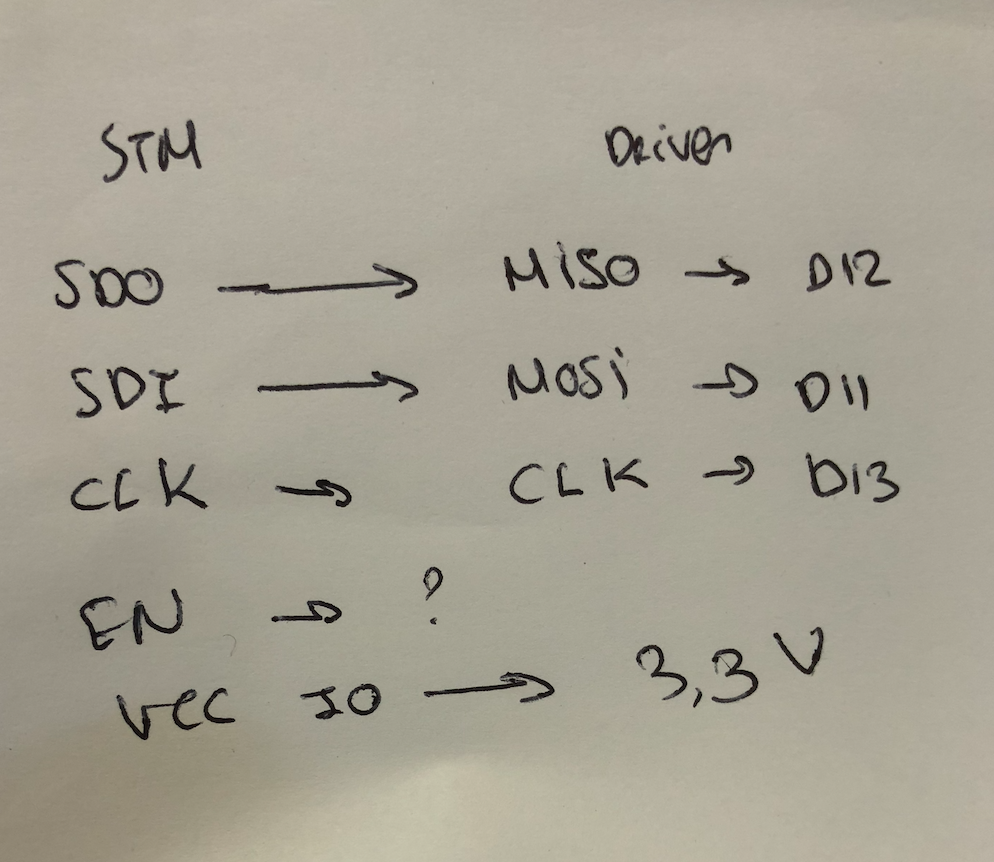 STM Driver
SDO → MiSO → D12
SDI → MOSi → D11
CLK → CLK → D13
EN → ?
Vcc IO → 3,3 V